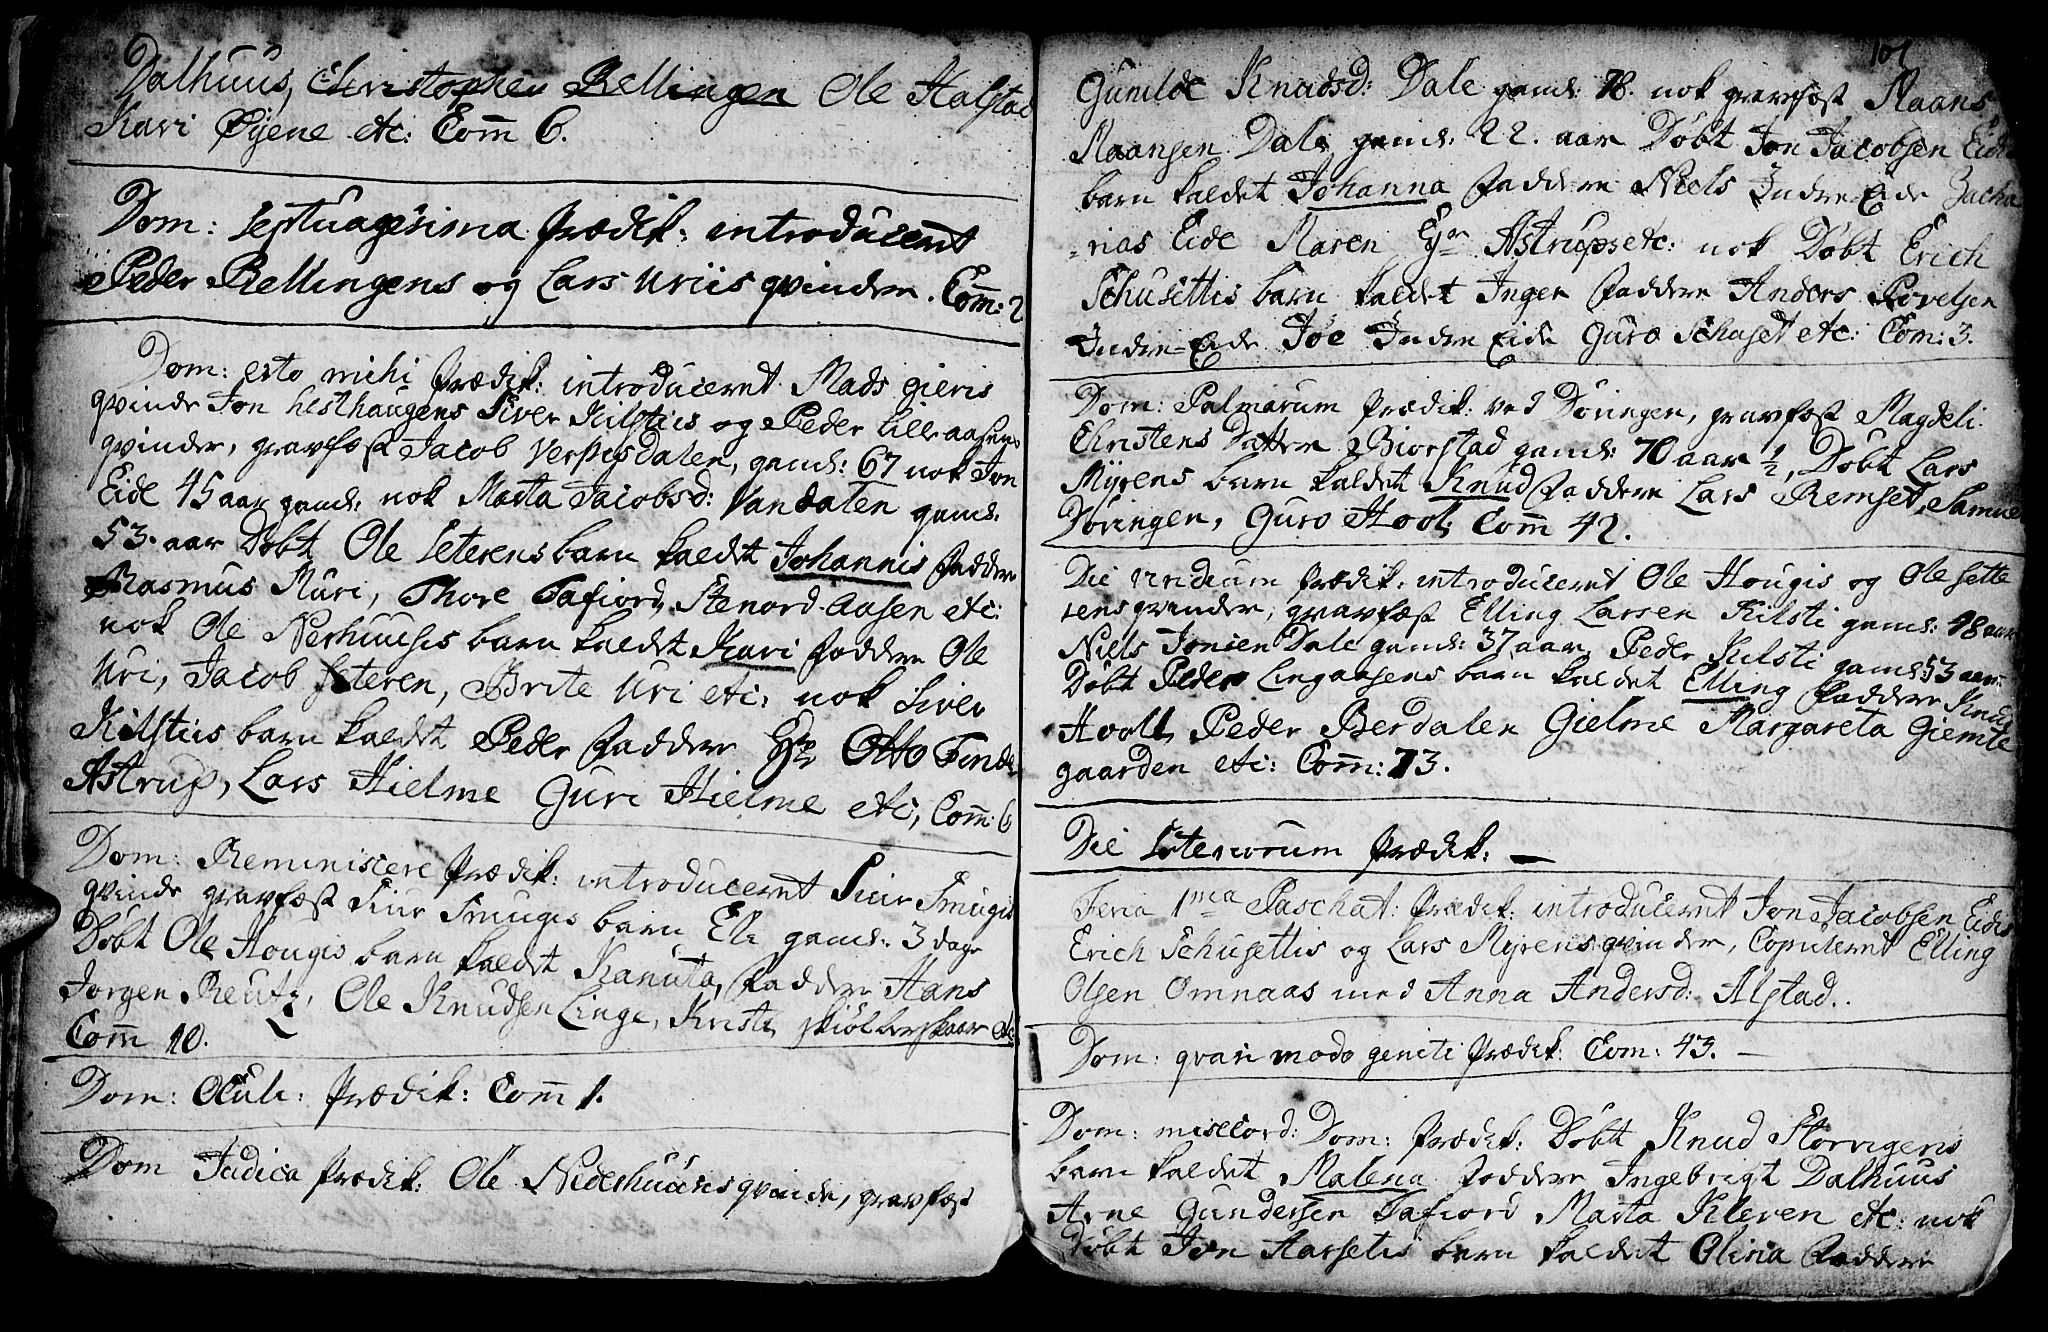 Dalhuus, Christopher Rellingen Ole Halstad
Kari Øyene etc: Com̅ 6.
Dom: septuagesima prædik: introducernt
Peder Rellingens og Lars Uriis qvinder. Com̅: 2
Dom: esto mihi prædik: introducernt Mads gieris
qvinde Jon hesthaugens Siver Kilstiis og Peder Lilleaasens
qvinder, gravfæst Jacob Verpesdalen, gaml: 67 nok Jon
Eide 45 aar gaml: nok Marta Jacobsd: Vandalen gaml:
53. aar Døbt Ole Seterens barn kaldet Johannis faddere
Rasmus Muri, Thore Tafiord, Stenord Aasen etc:
nok Ole Nerhuusis barn kaldet Kari faddere Ole
Uri, Jacob seteren, Brite Uri etc: nok Siver
Kilstiis barn kaldet Peder faddere Hr Otto Finde
Astrup, Lars Hielme Guri Hielme etc, Com̅: 6
Dom: Reminiscere prædik: introducernt Siur Smugis
qvinde gravfæst Siur Smugis barn Eli gaml: 3 dage
Døbt Ole Hougis barn kaldet Kanuta, faddere Hans
Jørgen Reutz, Ole Knudsen Linge, Kirsti skiølberskaar etc
Com̅ 10.
Dom: Oculi: prædik: Com̅ 1.
Dom Judica prædik: Ole Nederhuusis qvinde, gravfæst
101
Gunilde Knudsd: Dale gaml: 78. nok gravfæst Maans
Maansen Dale gaml: 22. aar Døbt Jon Jacobsen Eides
barn kaldet Johanna faddere Niels Indre-Eide Zacha
=rias Eide Maren Hr Astrups etc: nok Døbt Erich
Schusettis barn kaldet Inger faddere Anders Povelsen
Indre-Eide Joe Indre Eide Guro Schuset etc: Com: 3.
Dom: Palmarum prædik: ved Døringen, gravfæst Magdeli
Christens Datter Biorstad gaml: 70 aar ½, Døbt Lars
Myrens barn kaldet Knud faddere Lars Remset, Samuel
Døringen, Guro Hool, Com̅ 42.
Die viridium prædik: introducernt Ole Hougis og Ole sette
rens qvinder, gravfæst Elling Larsen Kilsti gaml: 48 aar
Niels Jonsen Dale gaml: 37 aar, Peder Kilsti gaml: 53 aar
Døbt Peder Lingaasens barn kaldet Elling faddere Knud
Hooll Peder Berdalen Gielme Margareta Giemle
gaarden etc: Com̅: 73.
Die prædik: —
Feria 1ma Paschat: prædik: introducernt Jon Jacobsen Eides
Erich Schusettis og Lars Myrens qvinder, Copulernt Elling
Olsen Omnaas med Anna Andersd: Alstad.
Dom: quasi modo geniti prædik: Com: 43. —
Dom: misecord: Dom: prædik: Døbt Knud Storvigens
barn kaldet Malena faddere Ingebrigt Dalhuus
Arne Gundersen Tafiord Marta Kleven etc: nok
Døbt Jon Aarsetis barn kaldet Olina faddere